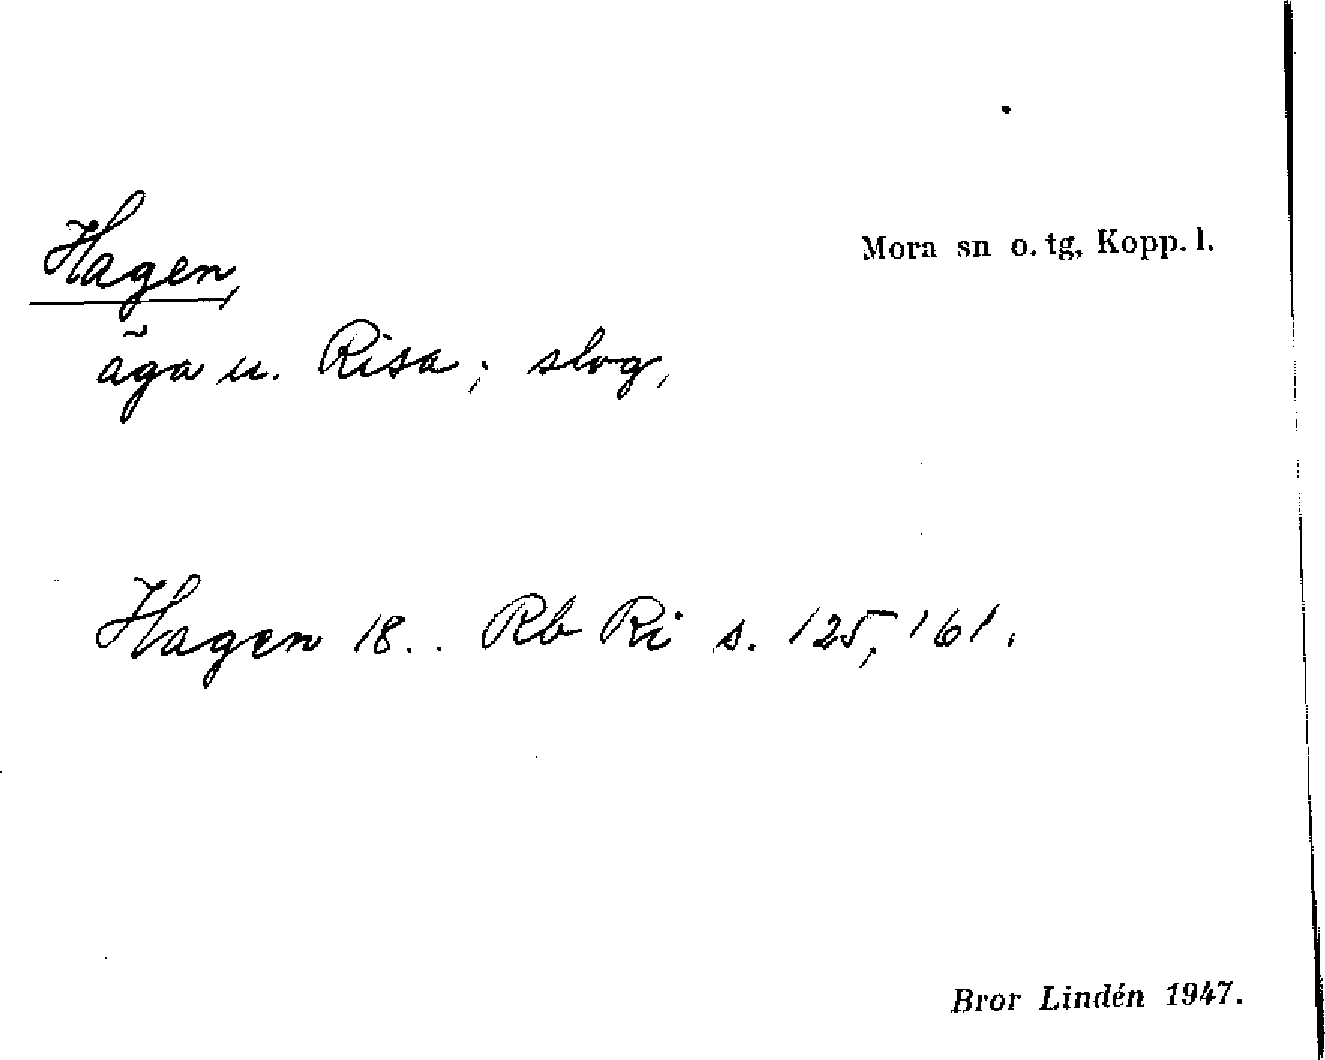 Hagen,
Mora sn o. tg, Kopp. l.
äga u. Risa; slog,
Hagen 18.. Rb Ri s. 125, 161.
Bror Lindén 1947.